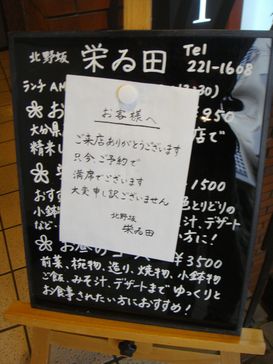 北野坂 栄ゐ田 Tel
221-1608
ランチ AM
お客様へ
ご来店ありがとうございます
只今ご予約で
満席でございます
大変申し訳ございません
北野坂
栄ゐ田
250
大分県
店で
精米し
1500
おす
色とりどりの
小鉢
汁、デザート
など
方に!
お昼のコース ¥3500
前菜、椀物、造り、焼物、小鉢物
ご飯、みそ汁、デザートまでゆっくりと
お食事されたい方におすすめ!